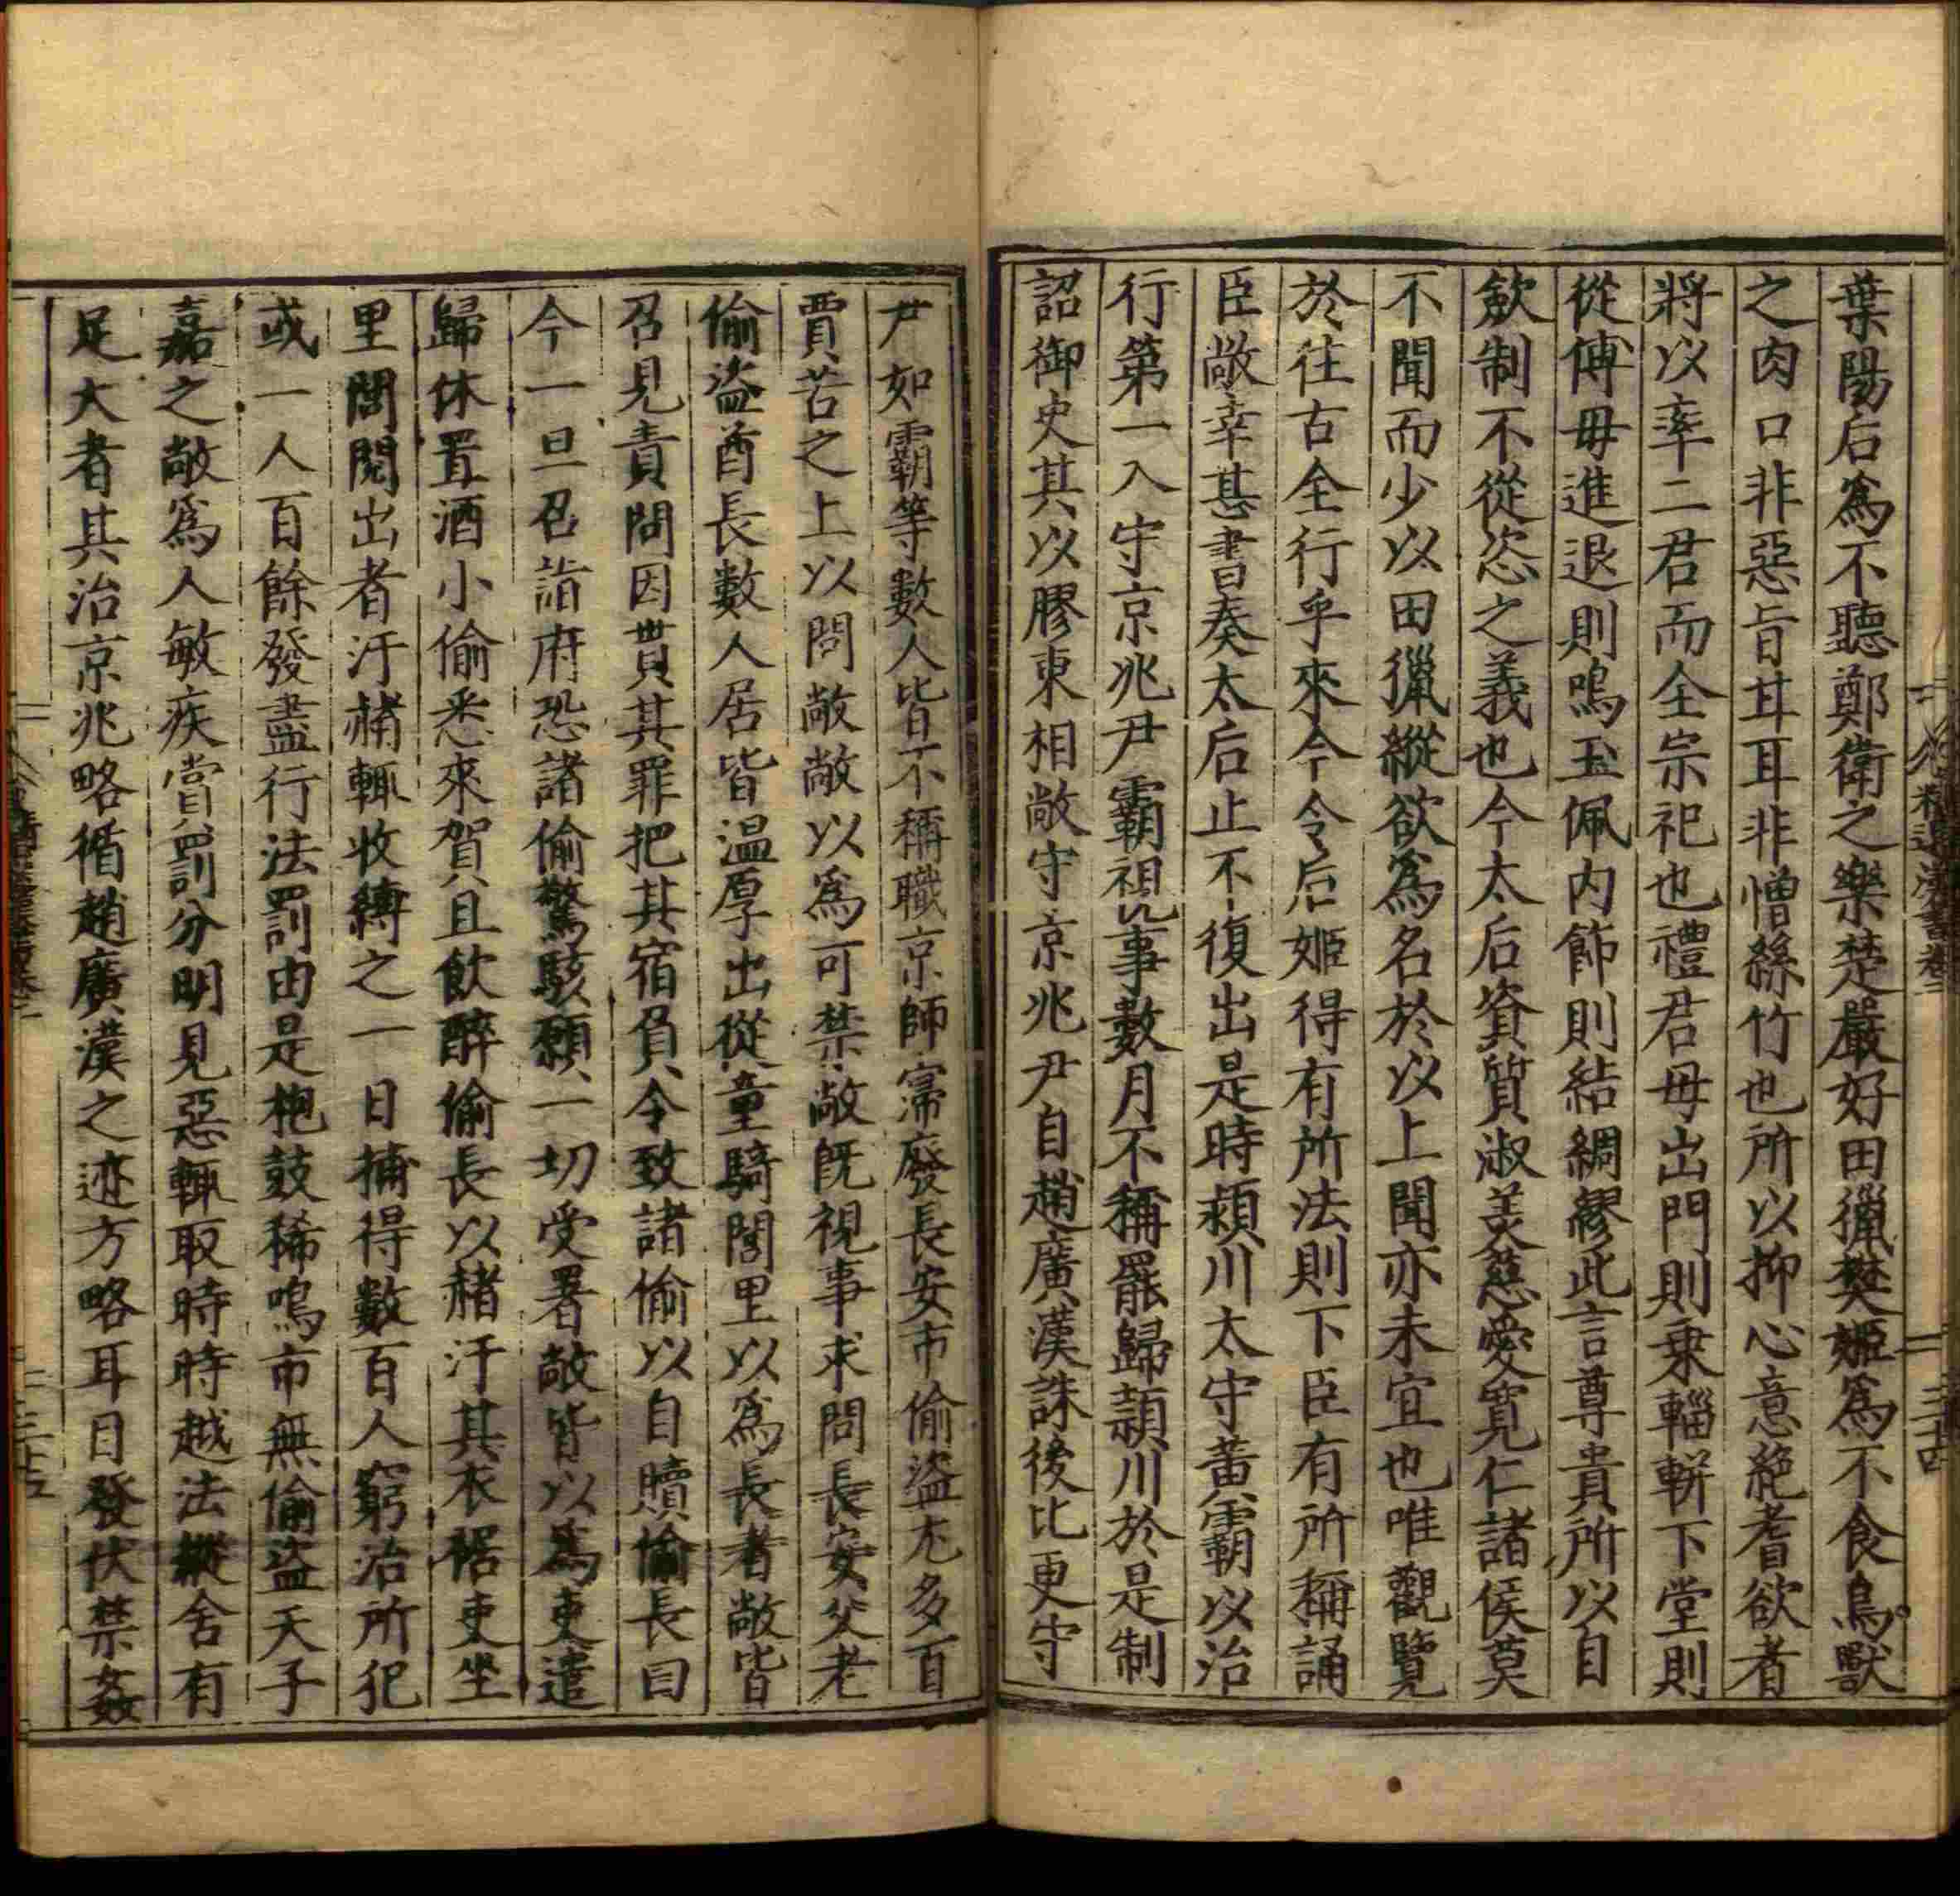 葉陽后爲不聽鄭衛之樂楚嚴好田獵樊姬爲不食鳥獸
之肉口非惡旨甘耳非憎絲竹也所以抑心意絶耆欲者
將以率二君而全宗祀也禮君母出門則乗輜輧下堂則
從傅母進退則鳴玉佩内飾則結綢繆此言尊貴所以自
歛制不從恣之義也今太后資質淑美慈愛寛仁諸侯莫
不聞而少以田獵縱欲爲名於以上聞亦未宜也唯觀覽
於往古全行乎來今令后姬得有所法則下臣有所稱誦
臣敞幸甚書奏太后止不復出是時潁川太守黄霸以治
行第一入守京兆尹霸視事數月不稱罷歸潁川於是制
詔御史其以膠東相敞守京兆尹自趙廣漢誅後比更守
尹如霸等數人皆不稱職京師𥧲廢長安市偷盗尤多百
賈苦之上以問敞敞以爲可禁敞旣視事求問長安父老
偷盗酋長數人居皆温厚出從童騎閭里以爲長者敞皆
召見責問因貰其罪把其宿負令致諸偷以自贖偷長曰
今一旦召詣府恐諸偷驚駭願一切受署敞皆以爲吏遣
歸休置酒小偷悉來賀且飲醉偷長以赭汙其衣裾吏坐
里閭閱出者汙赭輒收縛之一日捕得數百人窮治所犯
或一人百餘發盡行法罰由是枹鼓稀鳴市無偷盗天子
嘉之敞爲人敏疾賞罰分明見惡輒取時時越法縱舍有
足大者其治京兆略循趙廣漢之迹方略耳目發伏禁姦